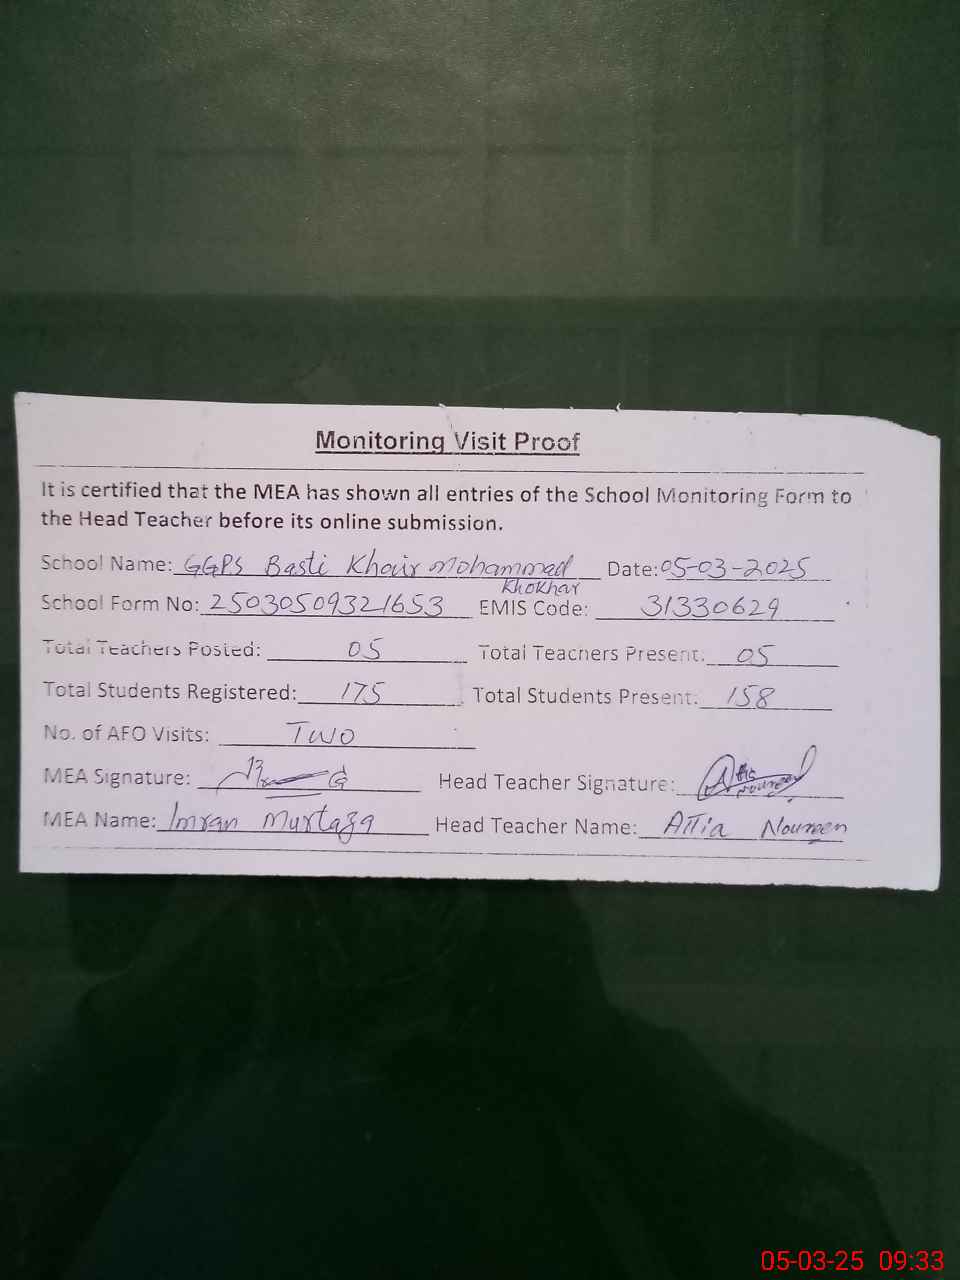 Monitoring Visit Proof
It is certified that the MEA has shown all entries of the School Monitoring Form to
the Head Teacher before its online submission.
School Name: GGPS Basti Khair Mohammad Date: 05-03-2025
Khokhar
School Form No: 25030509321653 EMIS Code: 31330629
Total Teachers Posted: 05 Total Teachers Present: 05
Total Students Registered: 175 Total Students Present: 158
No. of AFO Visits: Two
MEA Signature: Head Teacher Signature: Attia
Noureen
MEA Name: Imran Murtaza Head Teacher Name: Attia Noureen
05-03-25 09:33